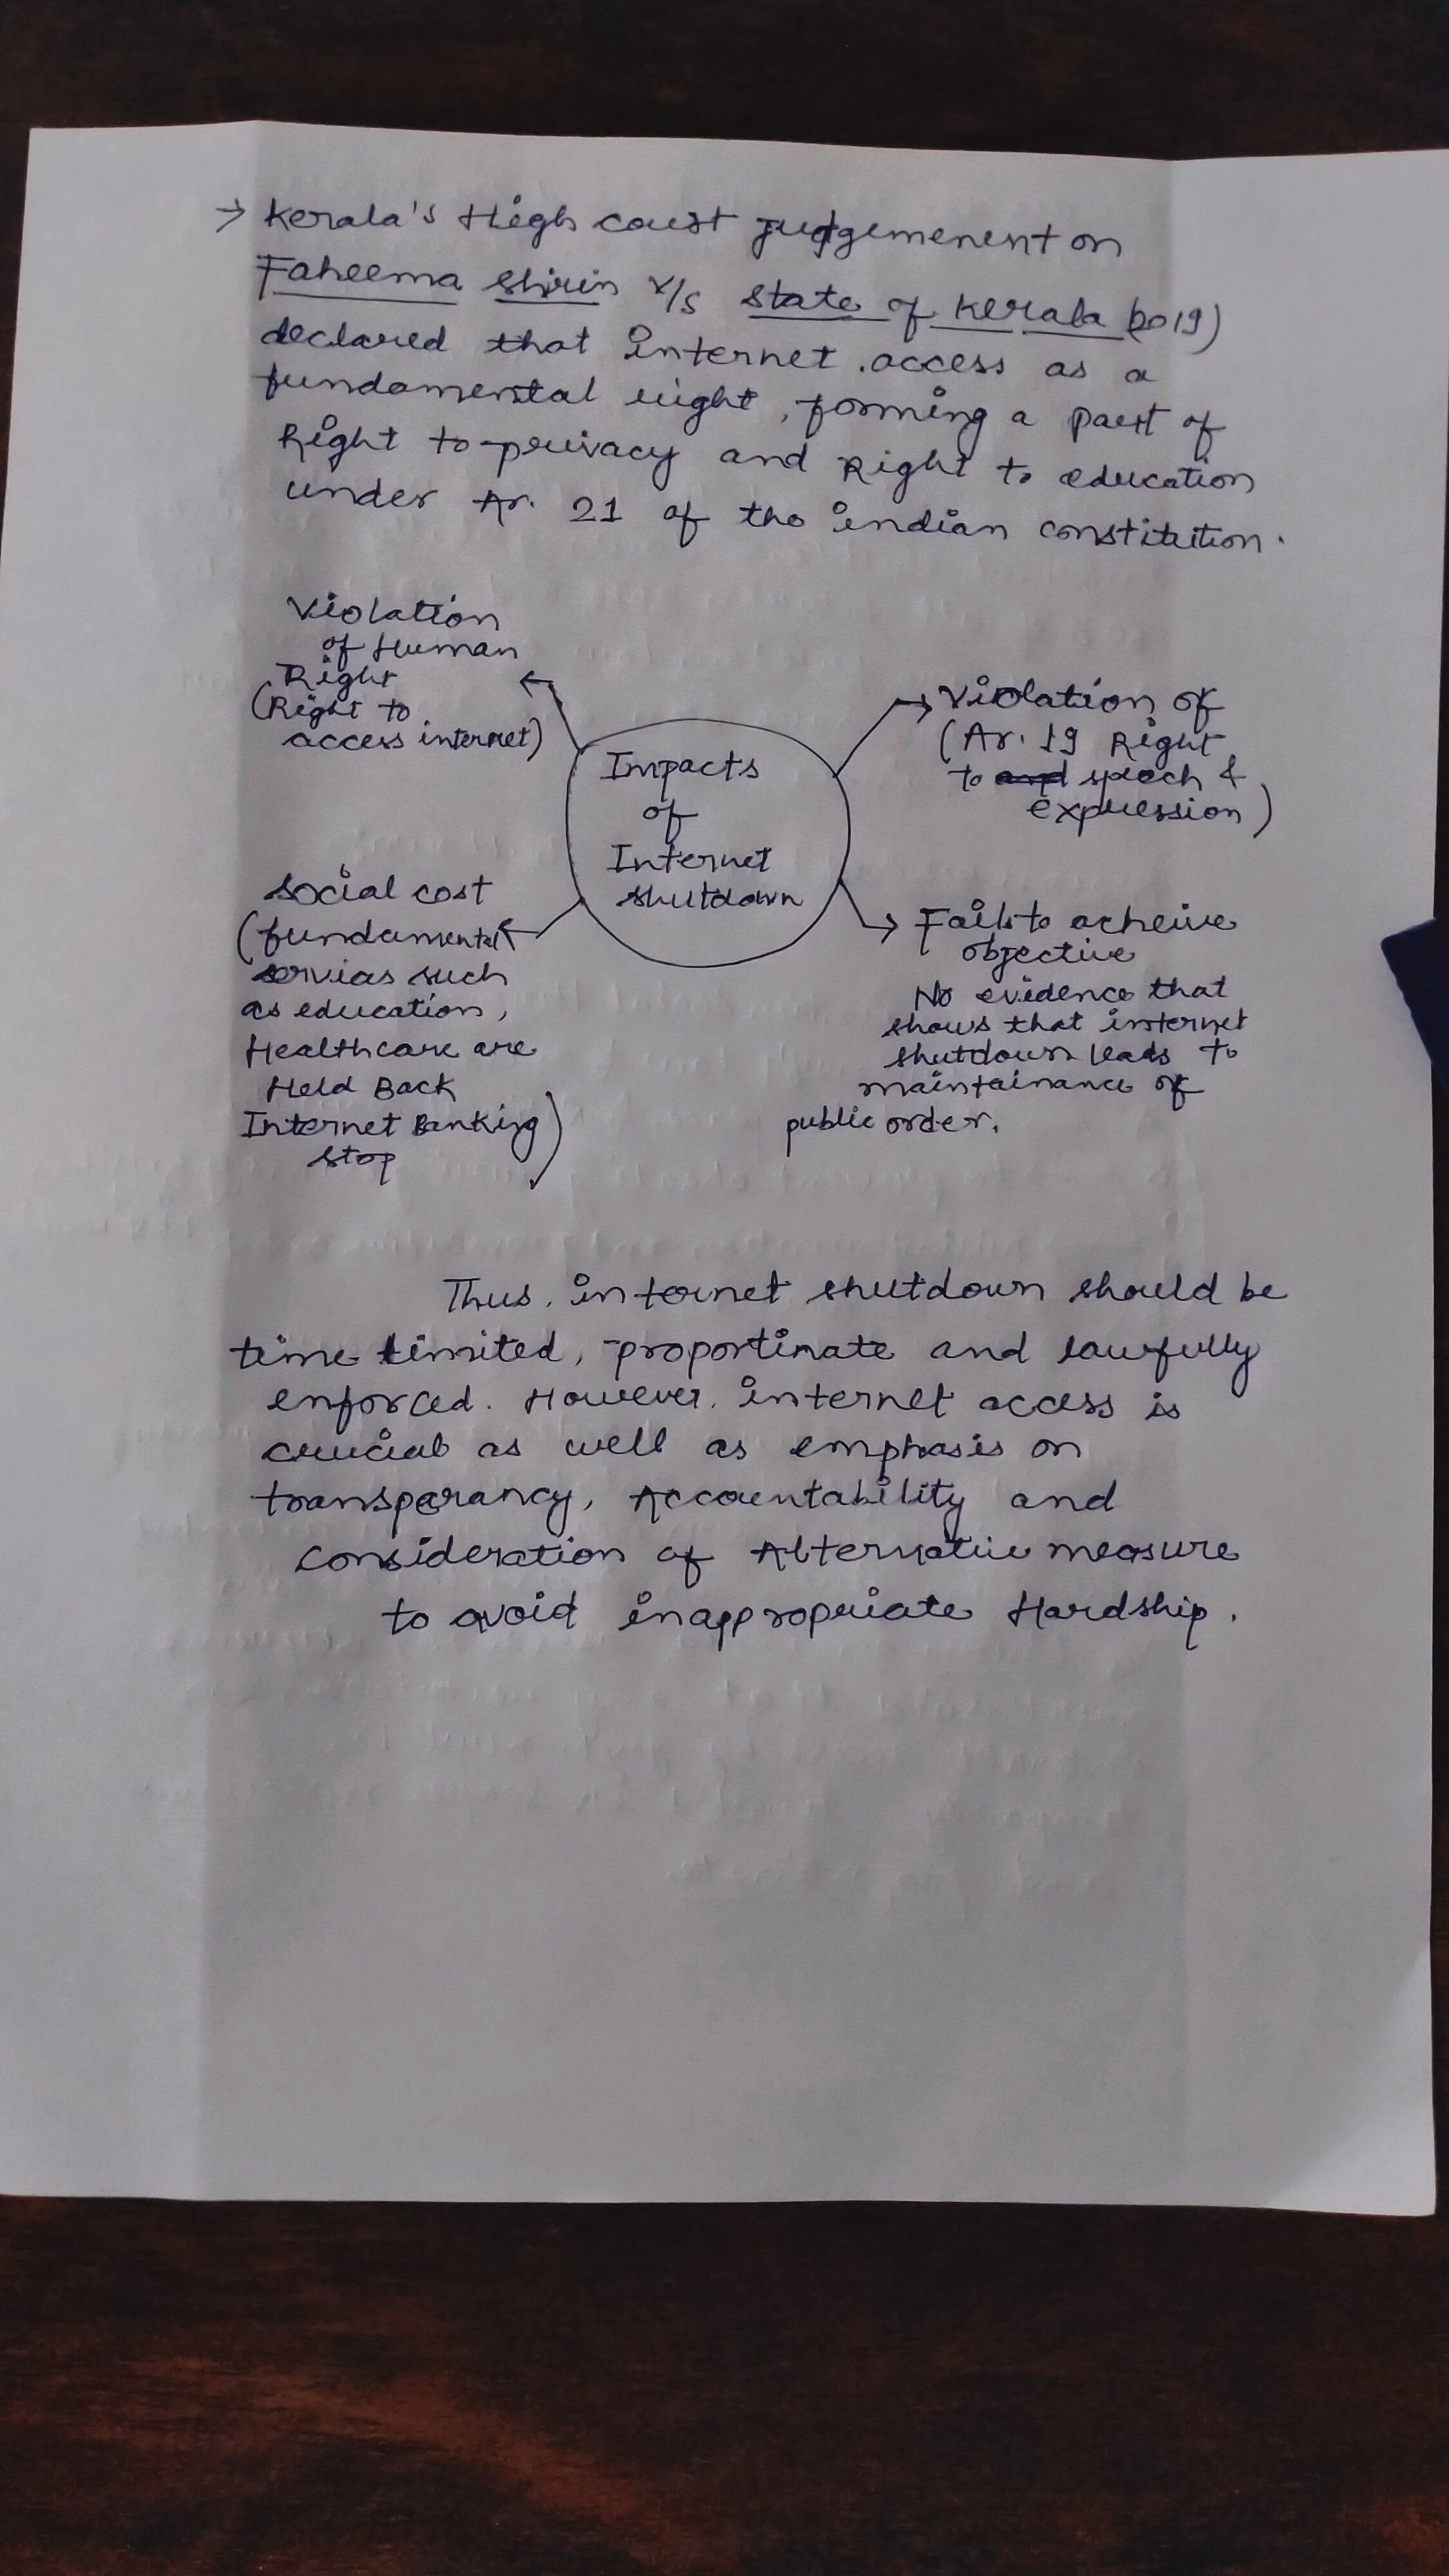 → Kerala's High court judgemenent on
Faheema shirin v/s state of Kerala (2019)
declared that internet access as a
fundamental right, forming a part of
Right to privacy and Right to education
under Ar. 21 of the indian constitution.
Violation
of Human
Right
(Right to
access internet)
Impacts
of
Internet
shutdown
Violation of
(Ar. 19 Right
to and speech &
expression)
social cost
(fundamental
servias such
as education,
Healthcare are
Held Back
Internet Banking
stop)
Fails to acheive
objective
No evidence that
shows that internet
shutdown leads to
maintainance of
public order.
Thus, internet shutdown should be
time limited, proportinate and lawfully
enforced. However, internet access is
crucial as well as emphasis on
transparancy, Accountability and
consideration of Alternative measure
to avoid inappropriate Hardship.